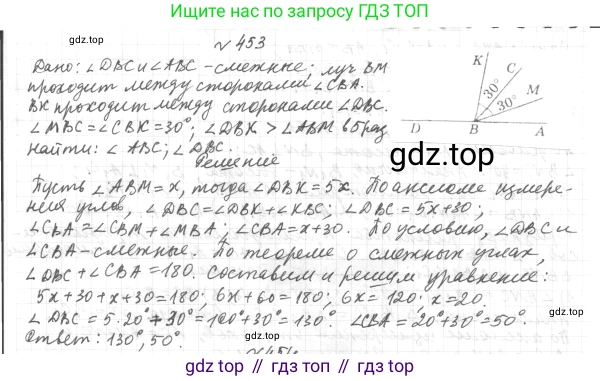 Ищите нас по запросу ГДЗ ТОП
№ 453
Дано: ∠DBC и ∠ABC - смежные; луч BM
проходит между сторонами ∠CBA.
BK проходит между сторонами ∠DBC.
∠MBC = ∠CBK = 30°; ∠DBK > ∠ABM в 5 раз
найти: ∠ABC; ∠DBC.
K
C
M
30°
30°
D
B
A
gdz.top
Решение
Пусть ∠ABM = x, тогда ∠DBK = 5x. По аксиоме измере-
ния углов, ∠DBC = ∠DBK + ∠KBC; ∠DBC = 5x+30;
∠CBA = ∠CBM + ∠MBA; ∠CBA = x+30. По условию, ∠DBC и
∠CBA - смежные. По теореме о смежных углах,
∠DBC + ∠CBA = 180. Составим и решим уравнение:
5x+30+x+30=180; 6x+60=180; 6x=120; x=20.
∠DBC = 5·20°+30° = 100°+30° = 130°. ∠CBA = 20°+30° = 50°.
Ответ: 130°, 50°.
gdz.top